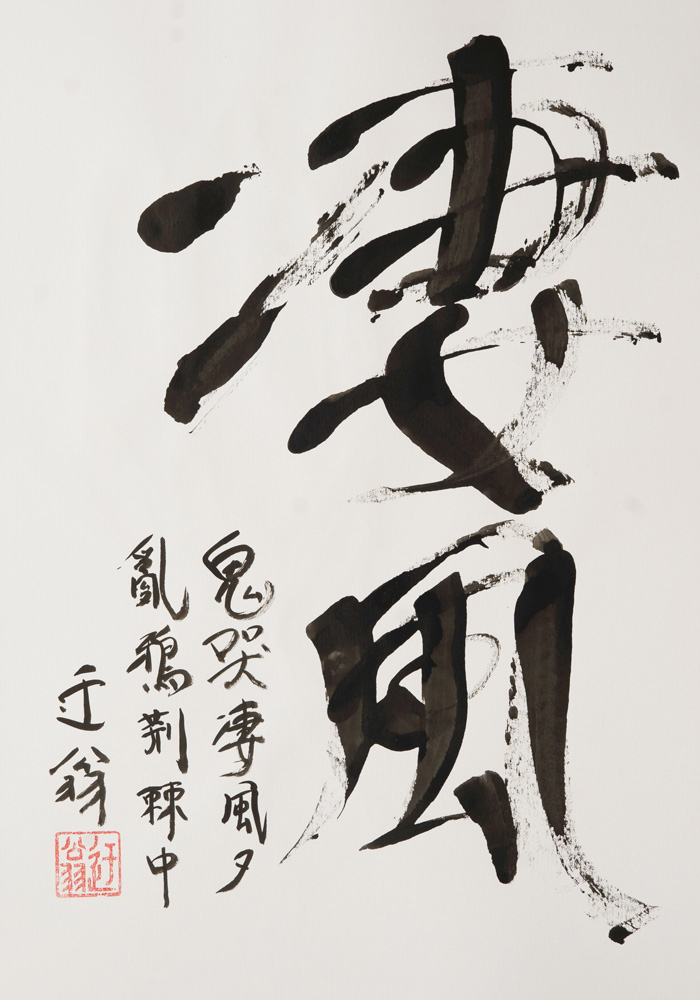 凄風
鬼哭凄風夕
亂鴉荊棘中
迂翁
迂翁